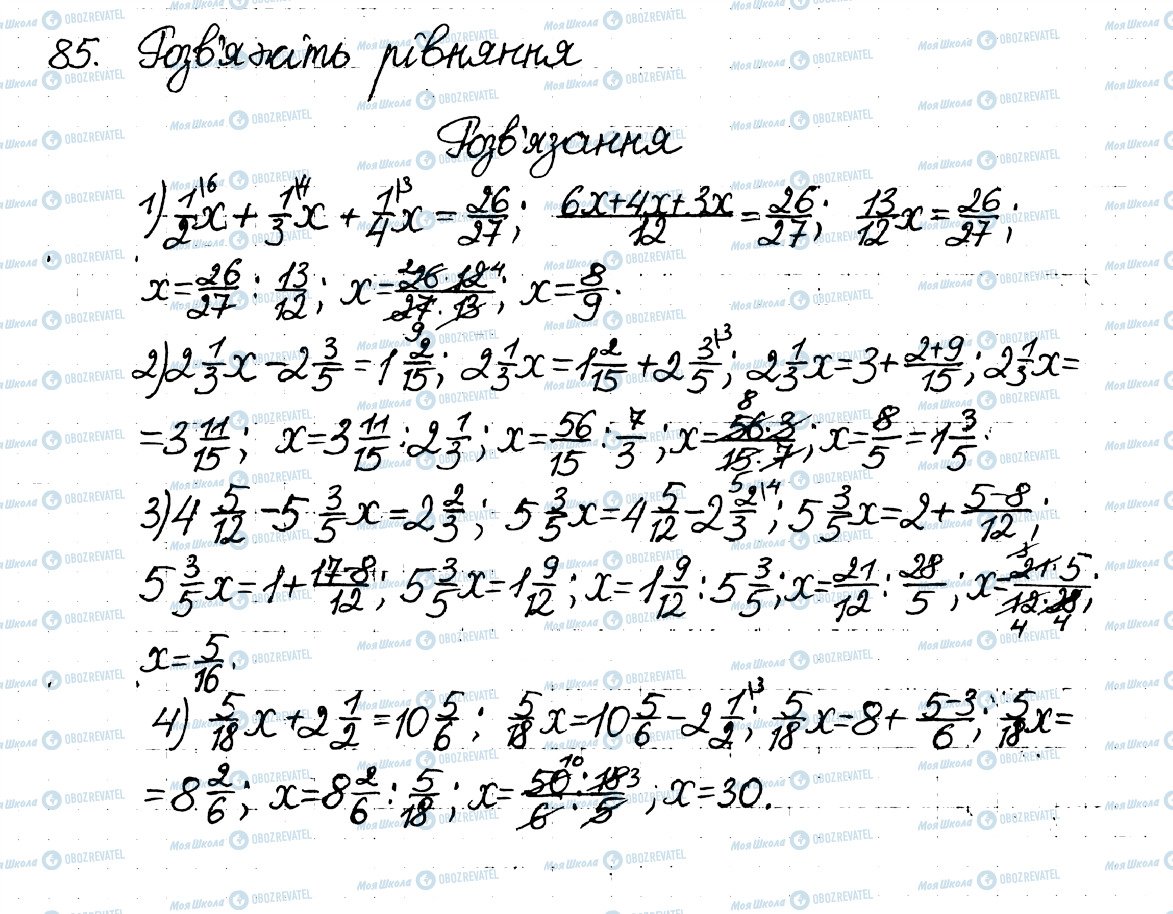 85. Розв'яжіть рівняння
Розв'язання
1) 1/2 |6 x + 1/3 |4 x + 1/4 |3 x = 26/27; (6x+4x+3x)/12 = 26/27; 13/12 x = 26/27;
x = 26/27 : 13/12; x = (26·12)/(27·13); x = 8/9.
2) 2 1/3 x − 2 3/5 = 1 2/15; 2 1/3 x = 1 2/15 + 2 3/5 |3; 2 1/3 x = 3 + (2+9)/15; 2 1/3 x =
= 3 11/15; x = 3 11/15 : 2 1/3; x = 56/15 : 7/3; x = (56·3)/(15·7); x = 8/5 = 1 3/5.
3) 4 5/12 − 5 3/5 x = 2 2/3; 5 3/5 x = 4 5/12 − 2 2/3 |4; 5 3/5 x = 2 + (5−8)/12;
5 3/5 x = 1 + (17−8)/12; 5 3/5 x = 1 9/12; x = 1 9/12 : 5 3/5; x = 21/12 : 28/5; x = (21·5)/(12·28);
x = 5/16.
4) 5/18 x + 2 1/2 = 10 5/6; 5/18 x = 10 5/6 − 2 1/2 |3; 5/18 x = 8 + (5−3)/6; 5/18 x =
= 8 2/6; x = 8 2/6 : 5/18; x = (50·18)/(6·5); x = 30.
МояШкола OBOZREVATEL